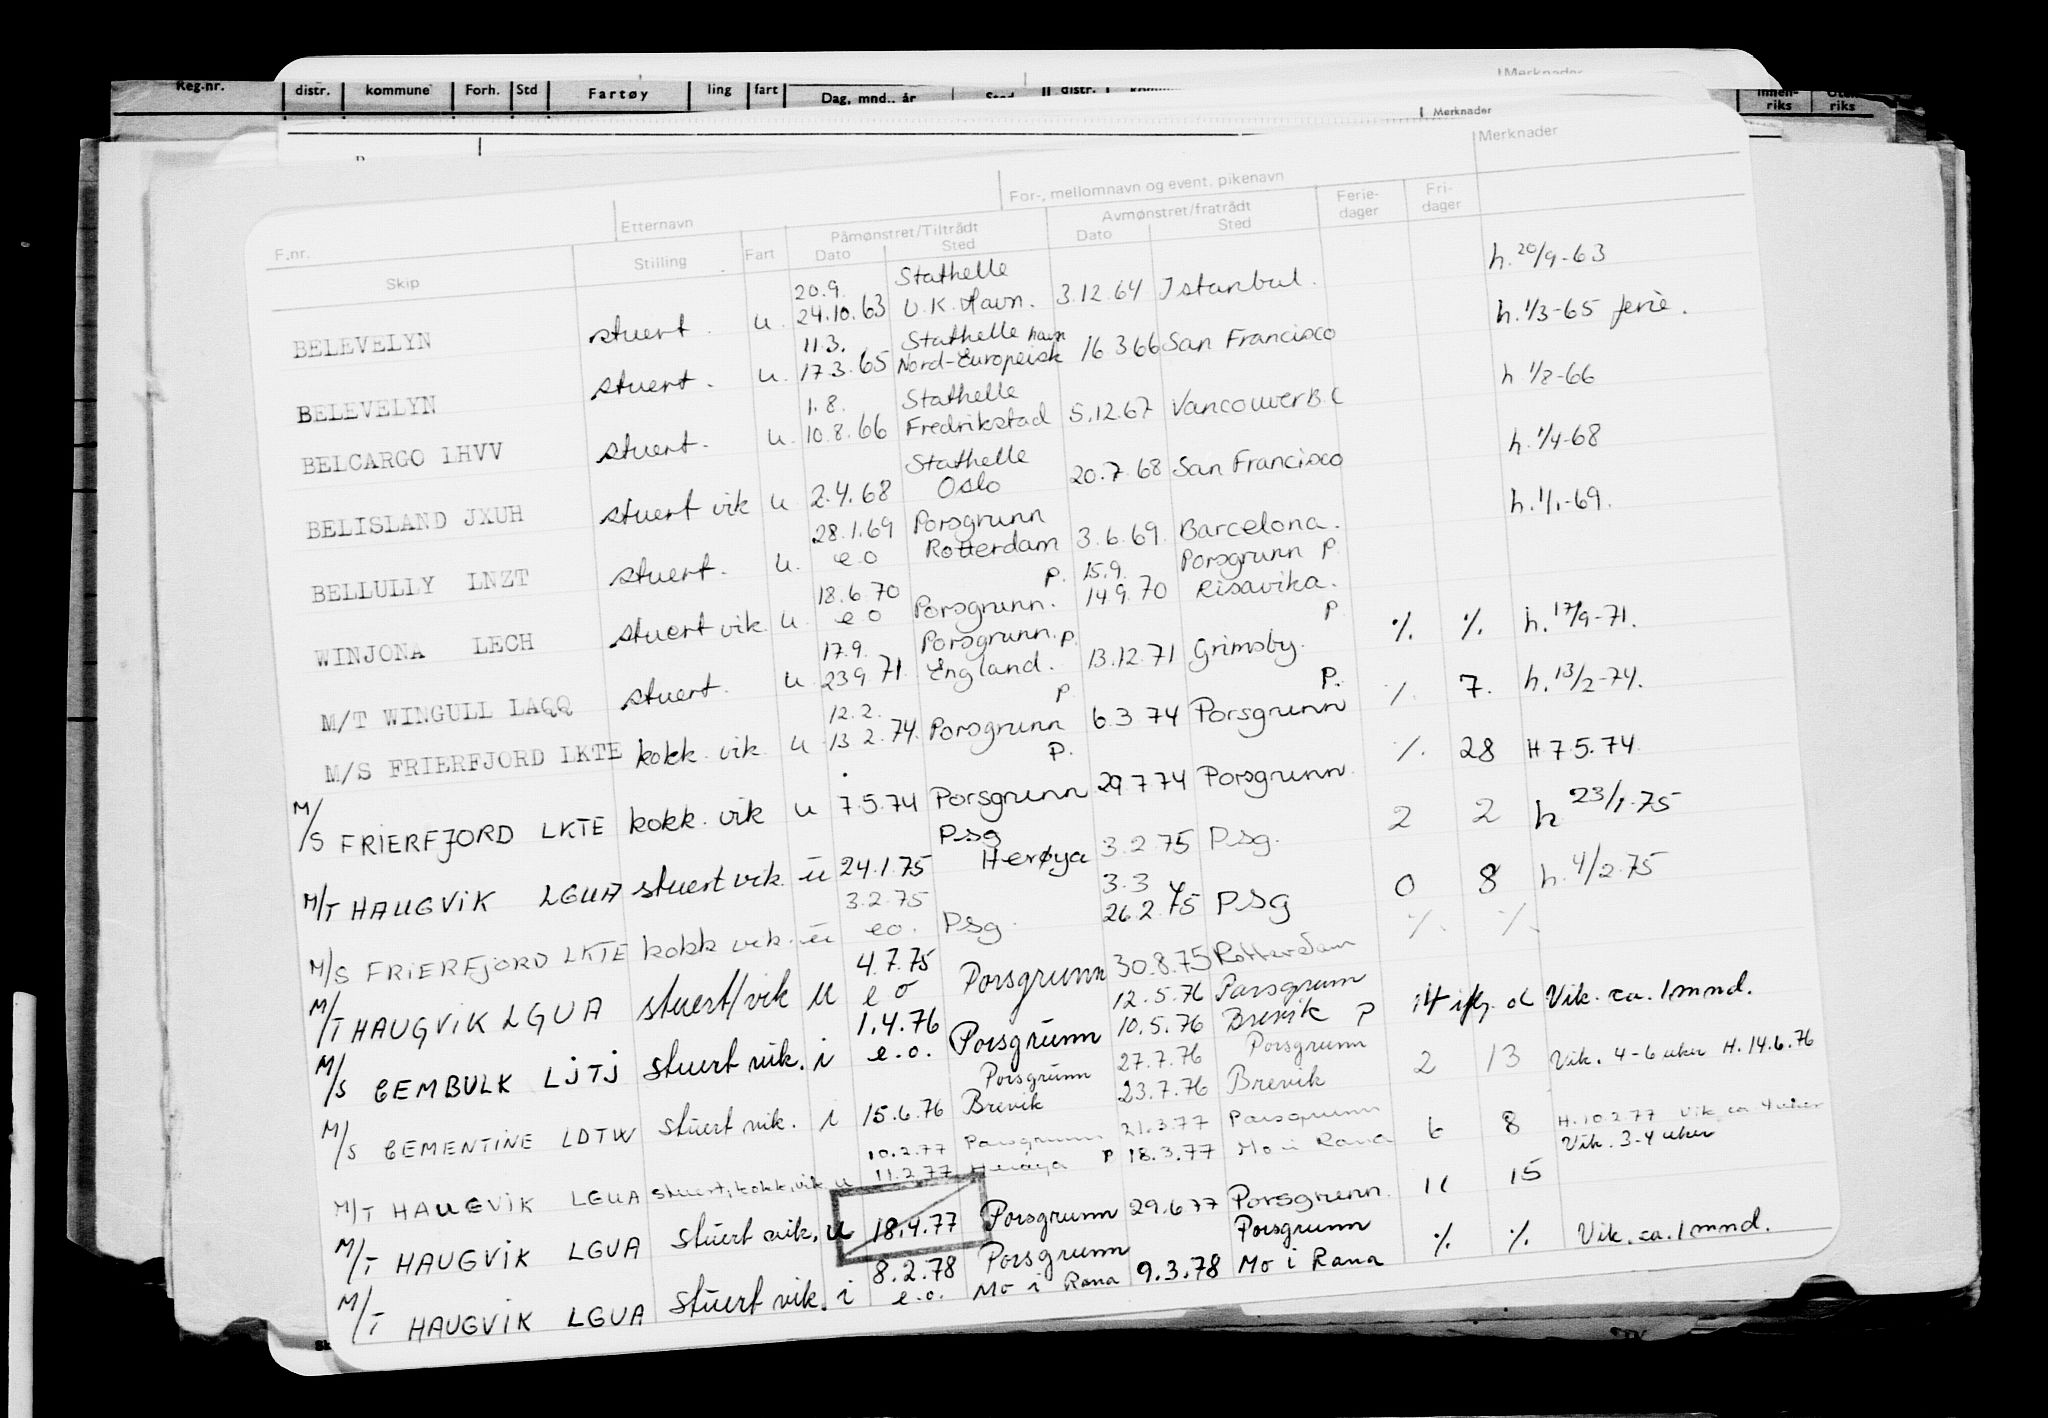 Reg.nr. distr. kommune Forh. Std Fartøy ling fart Dag, mnd., år Sted distr. riks riks
Merknader
Merknader
Merknader
F.nr. Etternavn For-, mellomnavn og event. pikenavn
Skip Stilling Fart Påmønstret/Tiltrådt Dato Sted Avmønstret/fratrådt Dato Sted Ferie-dager Fri-dager
20.9. Stathelle h. 20/9-63
BELEVELYN stuert. u. 24.10.63 U.K. Havn. 3.12.64 Istanbul.
11.3. Stathelle havn h. 1/3-65 ferie.
BELEVELYN stuert. u. 17.3.65 Nord-Europeisk 16 3 66 San Francisco
1.8. Stathelle h 1/8-66
BELCARGO LHVV stuert. u. 10.8.66 Fredrikstad 5.12.67 Vancouver B.C
Stathelle h. 1/4-68
BELISLAND JXUH stuert vik u 2.4.68 Oslo 20.7.68 San Francisco
28.1.69 Porsgrunn h. 1/1-69.
BELLULLY LNZT stuert. u. e.o Rotterdam 3.6.69. Barcelona.
18.6.70 P. 15.9. Porsgrunn P.
WINJONA LECH stuert vik. u. e o Porsgrunn. 14 9.70 Risavika.
17.9. Porsgrunn. P. P
M/T WINGULL LAQQ stuert. u. 23 9.71. England. 13.12.71 Grimsby. % % h. 17/9-71.
12.2. P P.
M/S FRIERFJORD LKTE kokk. vik. u 13 2.74. Porsgrunn 6.3 74 Porsgrunn % 7. h. 13/2-74.
P.
M/S FRIERFJORD LKTE kokk. vik u 7.5.74 Porsgrunn 29 7 74 Porsgrunn. % 28 H 7.5.74.
Psg
M/T HAUGVIK LGUA stuert vik. u 24.1.75 Herøya 3.2.75 Psg. 2 2 h 23/1.75
3.2.75 3.3
M/S FRIERFJORD LKTE kokk vik. u eo. Psg. 26.2.75 PSg 0 8 h. 4/2.75
4.7.75
M/T HAUGVIK LGUA stuert/vik u e o Porsgrunn 30.8.75 Rotterdam % %
1.4.76 12.5.76 Porsgrunn
M/S CEMBULK LJTJ Stuert vik. i e.o. Porsgrunn 10.5.76 Brevik P 14 Vik. ca. 1 mnd.
Porsgrunn 27.7.76 Porsgrunn
M/S CEMENTINE LDTW Stuert vik. i 15.6.76 Brevik 23.7.76 Brevik 2 13 Vik. 4-6 uker H. 14.6.76
10.2.77 Porsgrunn 21.3.77 Porsgrunn H. 10.2.77 Vik. ca. 4 uker
M/T HAUGVIK LGUA stuert, kokk, vik u 11.2.77 Herøya P 18.3.77 Mo i Rana 6 8 Vik. 3-4 uker
M/T HAUGVIK LGUA Stuert vik. u 18.4.77 Porsgrunn 29.6 77 Porsgrunn. 11 15
8.2.78 Porsgrunn Porsgrunn
M/T HAUGVIK LGUA Stuert vik. i e.o. Mo i Rana 9.3.78 Mo i Rana % % Vik. ca. 1 mnd.